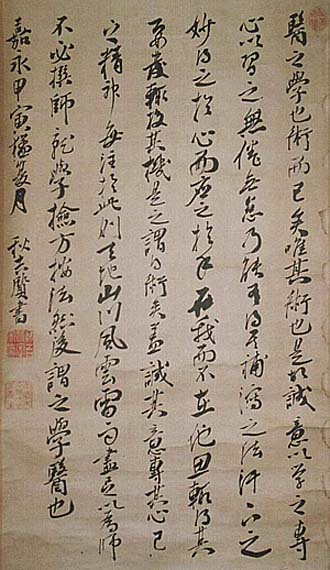 醫之學也術而已矣唯其術也是故誠意以學之專
心以習之無倦無怠乃能有得乎補瀉之法汗下之
妙得之於心而應之於手在我而不在他思輒得其
要發輒投其機是之謂得術矣蓋誠其意專其心已
之精神每注於此則天地山川風雲雷雨盡足以為師
不必擇師就學撿方按法然後謂之學醫也
嘉永甲寅孟夏月 秋